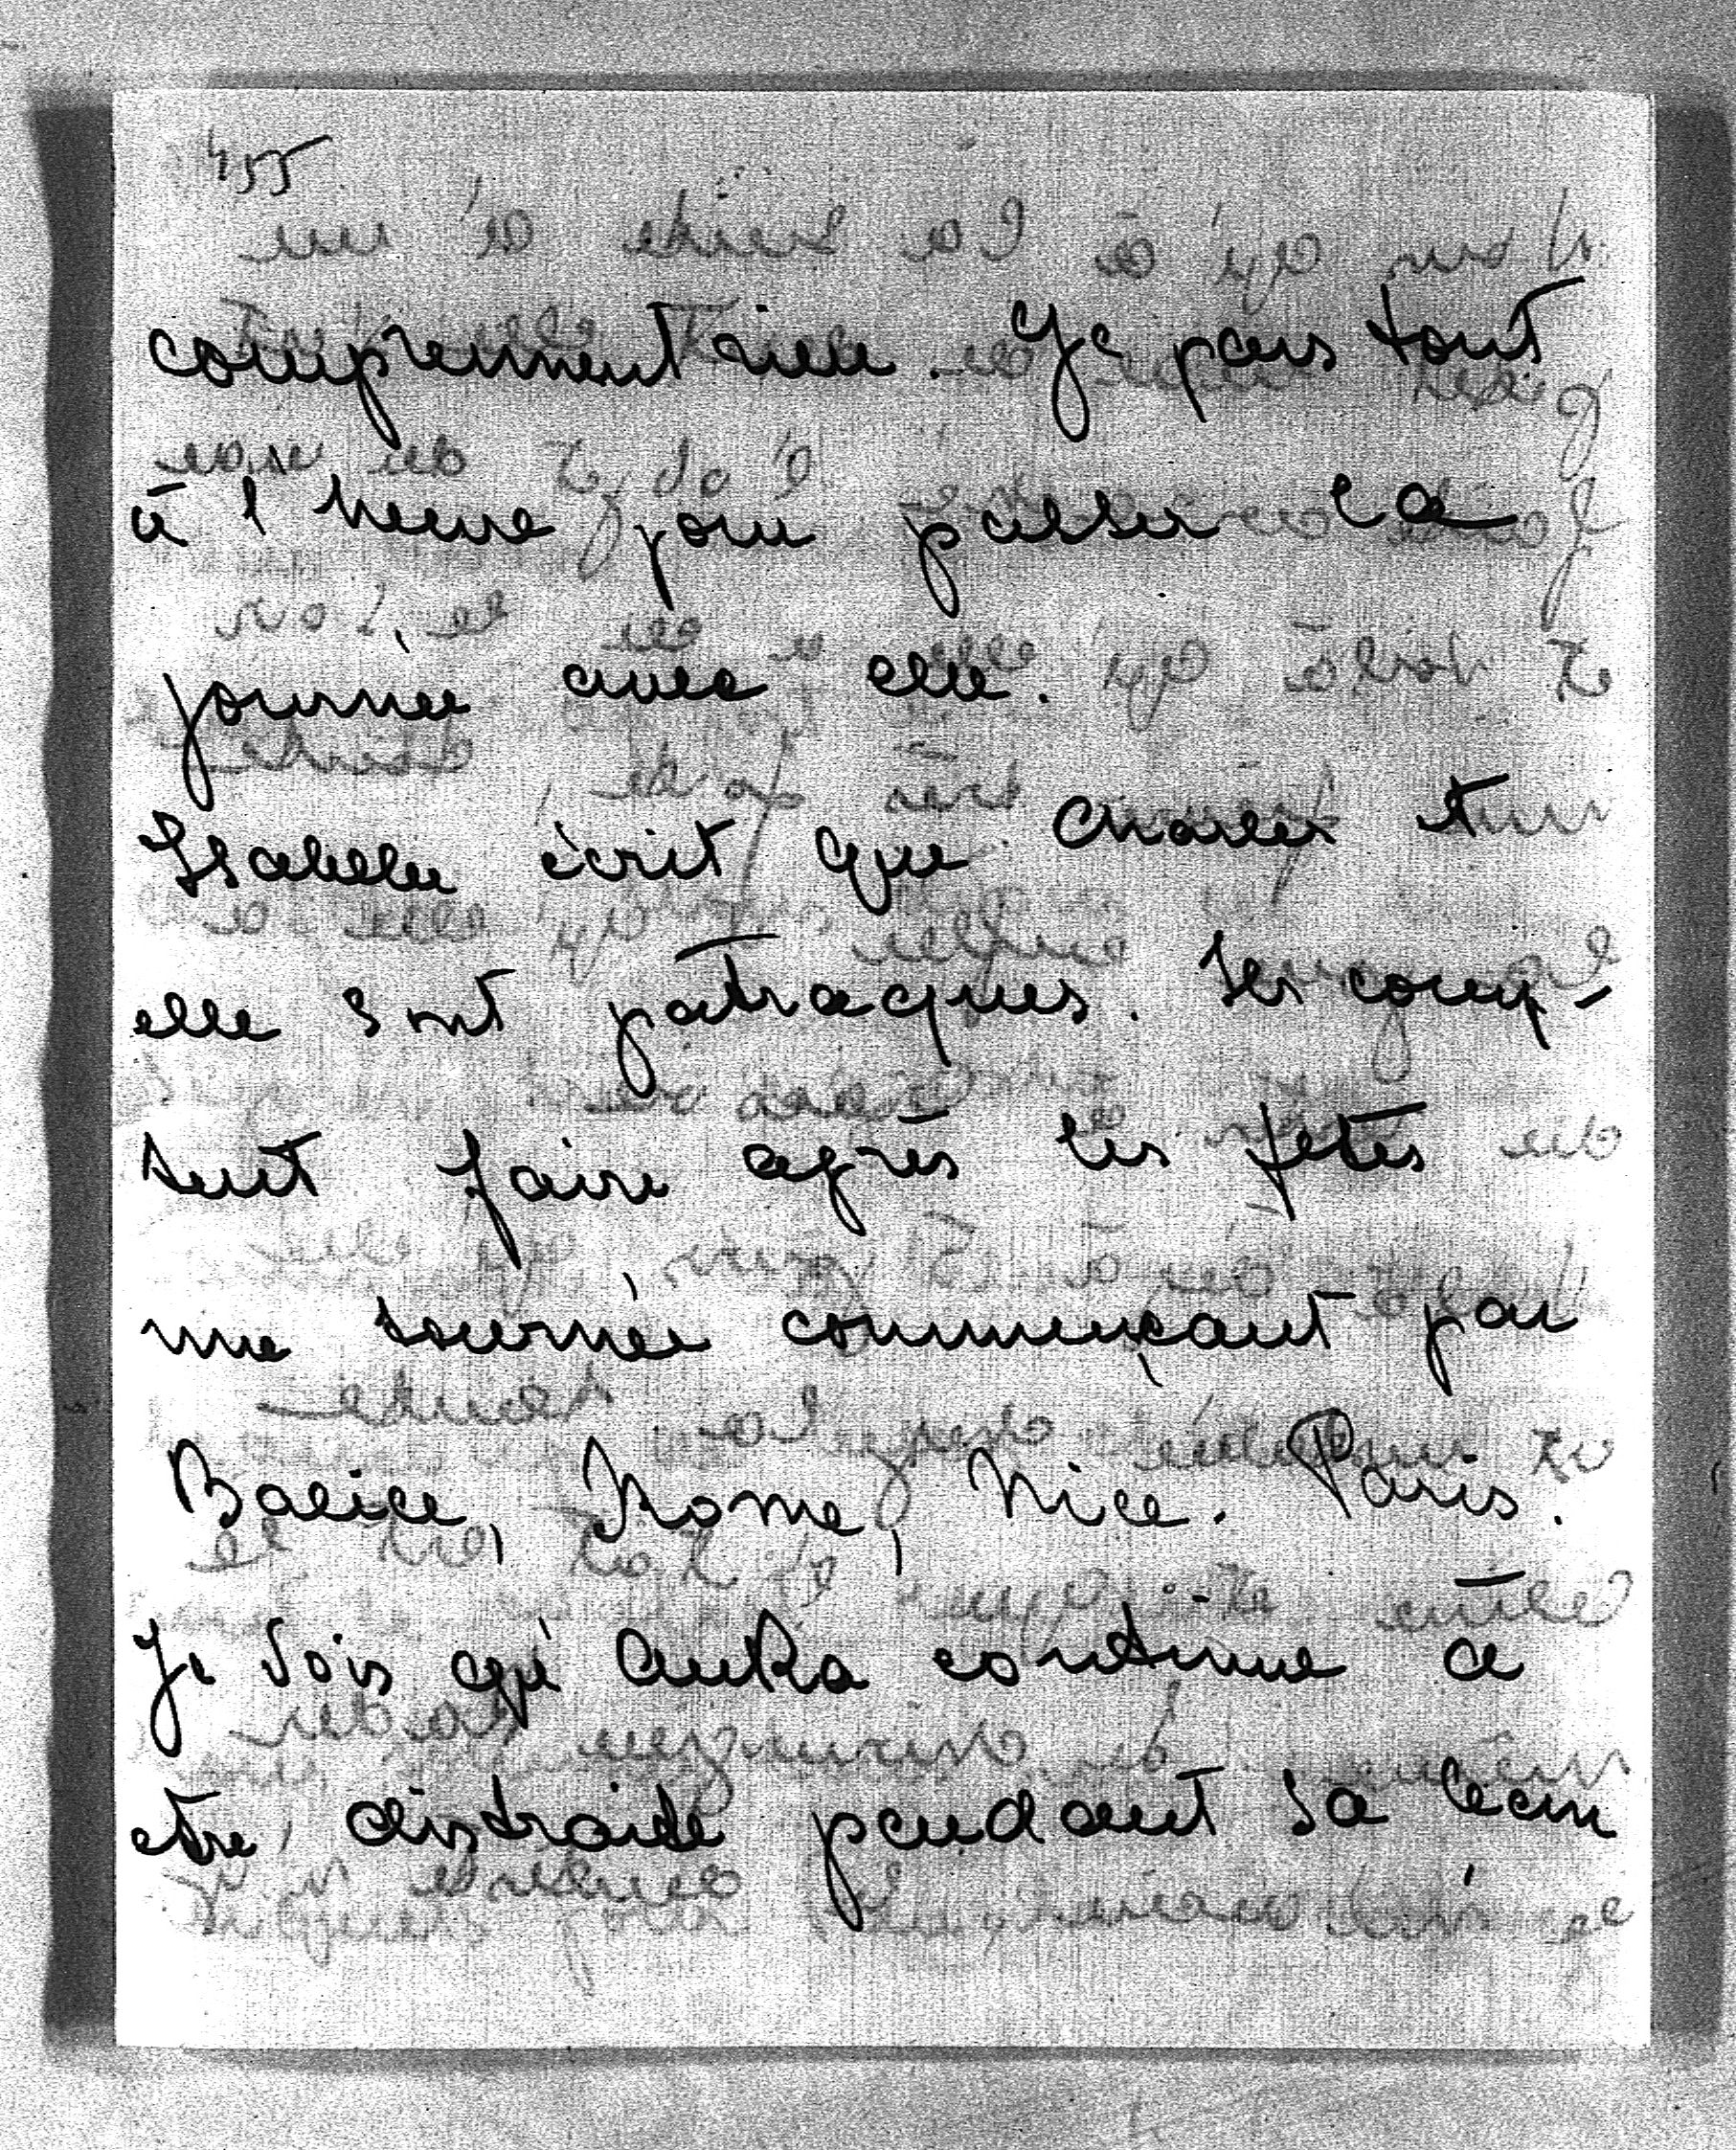 455
comprennent rien. Je pars tout
à l'heure pour passer la
journée avec elle.
Isabelle écrit que Charles et
elle sont patraques. Ils comp-
tent faire après les fetes
une tournée commençant par
Balice, Rome, Nice. Paris.
Je vois qu'Anka continue a
etre distraite pendant sa leçon